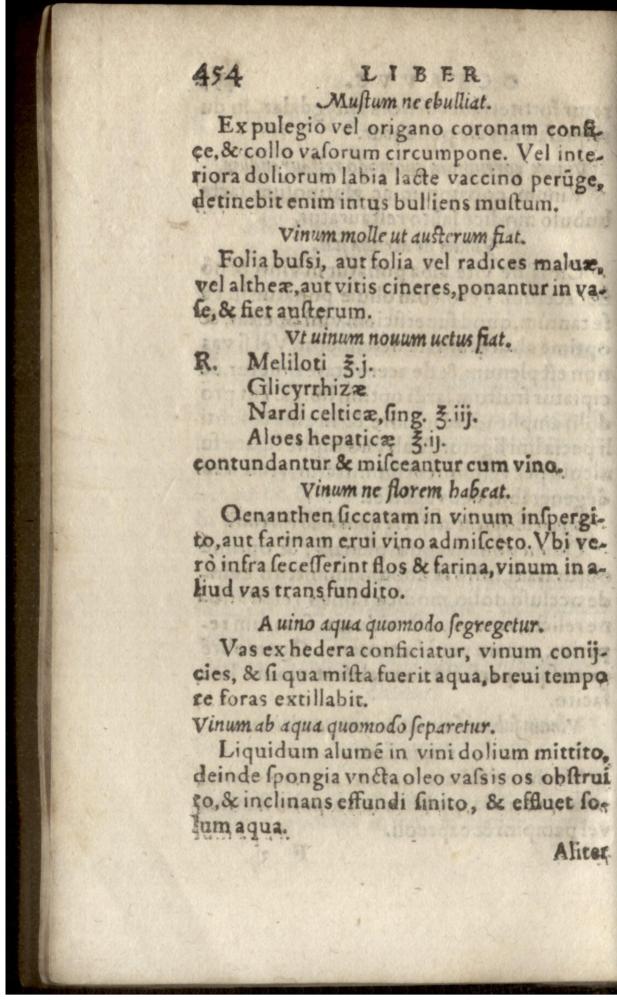 454 LIBER
Muſtum ne ebulliat.
Ex pulegio vel origano coronam confi-
çe, & collo vaſorum circumpone. Vel inte-
riora doliorum labia lacte vaccino perũge,
detinebit enim intus bulliens muſtum.
Vinum molle ut auſterum fiat.
Folia buſsi, aut folia vel radices maluæ,
vel altheæ, aut vitis cineres, ponantur in va-
ſe, & fiet auſterum.
Vt uinum nouum uetus fiat.
R. Meliloti ℥.j.
Glicyrrhizæ
Nardi celticæ, ſing. ℥.iij.
Aloes hepaticæ ℥.ij.
contundantur & miſceantur cum vino.
Vinum ne florem habeat.
Oenanthen ſiccatam in vinum inſpergi-
to, aut farinam erui vino admiſceto. Vbi ve-
rò infra ſeceſſerint flos & farina, vinum in a-
liud vas transfundito.
A uino aqua quomodo ſegregetur.
Vas ex hedera conficiatur, vinum conij-
cies, & ſi qua miſta fuerit aqua, breui tempo
re foras extillabit.
Vinum ab aqua quomodo ſeparetur.
Liquidum alumē in vini dolium mittito,
deinde ſpongia vncta oleo vaſsis os obſtrui
to, & inclinans effundi ſinito, & effluet ſo-
lum aqua.
Aliter